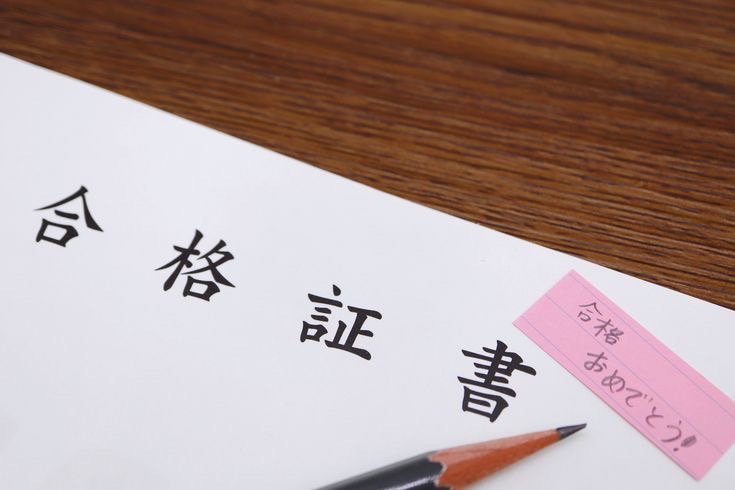 合格証書
合格
おめでとう!